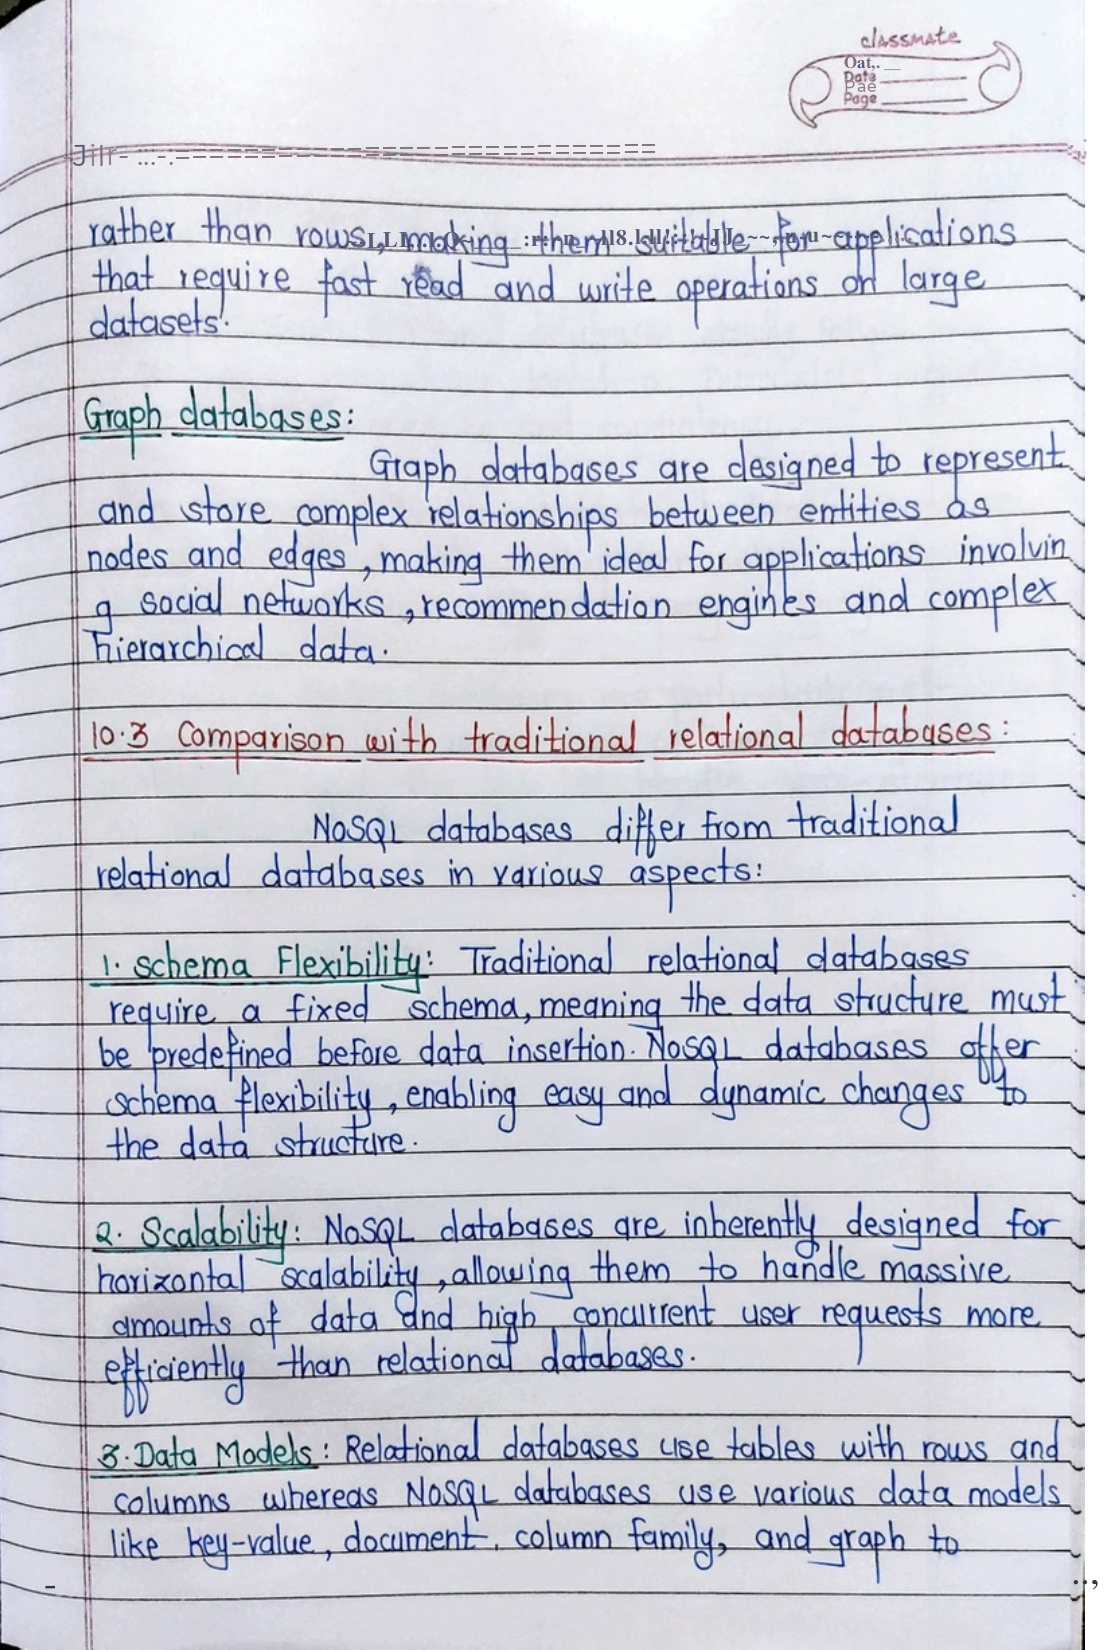 classmate
Oat,. __
Date
Pae
Page
Jilr- :..-.:============================
rather than rows, making them suitable for applications
that require fast read and write operations on large
datasets.
Graph databases:
Graph databases are designed to represent
and store complex relationships between entities as
nodes and edges, making them ideal for applications involvin
g social networks, recommendation engines and complex
hierarchical data.
10.3 Comparison with traditional relational databases:
NoSQL databases differ from traditional
relational databases in various aspects:
1. Schema Flexibility: Traditional relational databases
require a fixed schema, meaning the data structure must
be predefined before data insertion. NoSQL databases offer
schema flexibility, enabling easy and dynamic changes to
the data structure.
2. Scalability: NoSQL databases are inherently designed for
horizontal scalability, allowing them to handle massive
amounts of data and high concurrent user requests more
efficiently than relational databases.
3. Data Models: Relational databases use tables with rows and
columns whereas NoSQL databases use various data models
like key-value, document, column family, and graph to